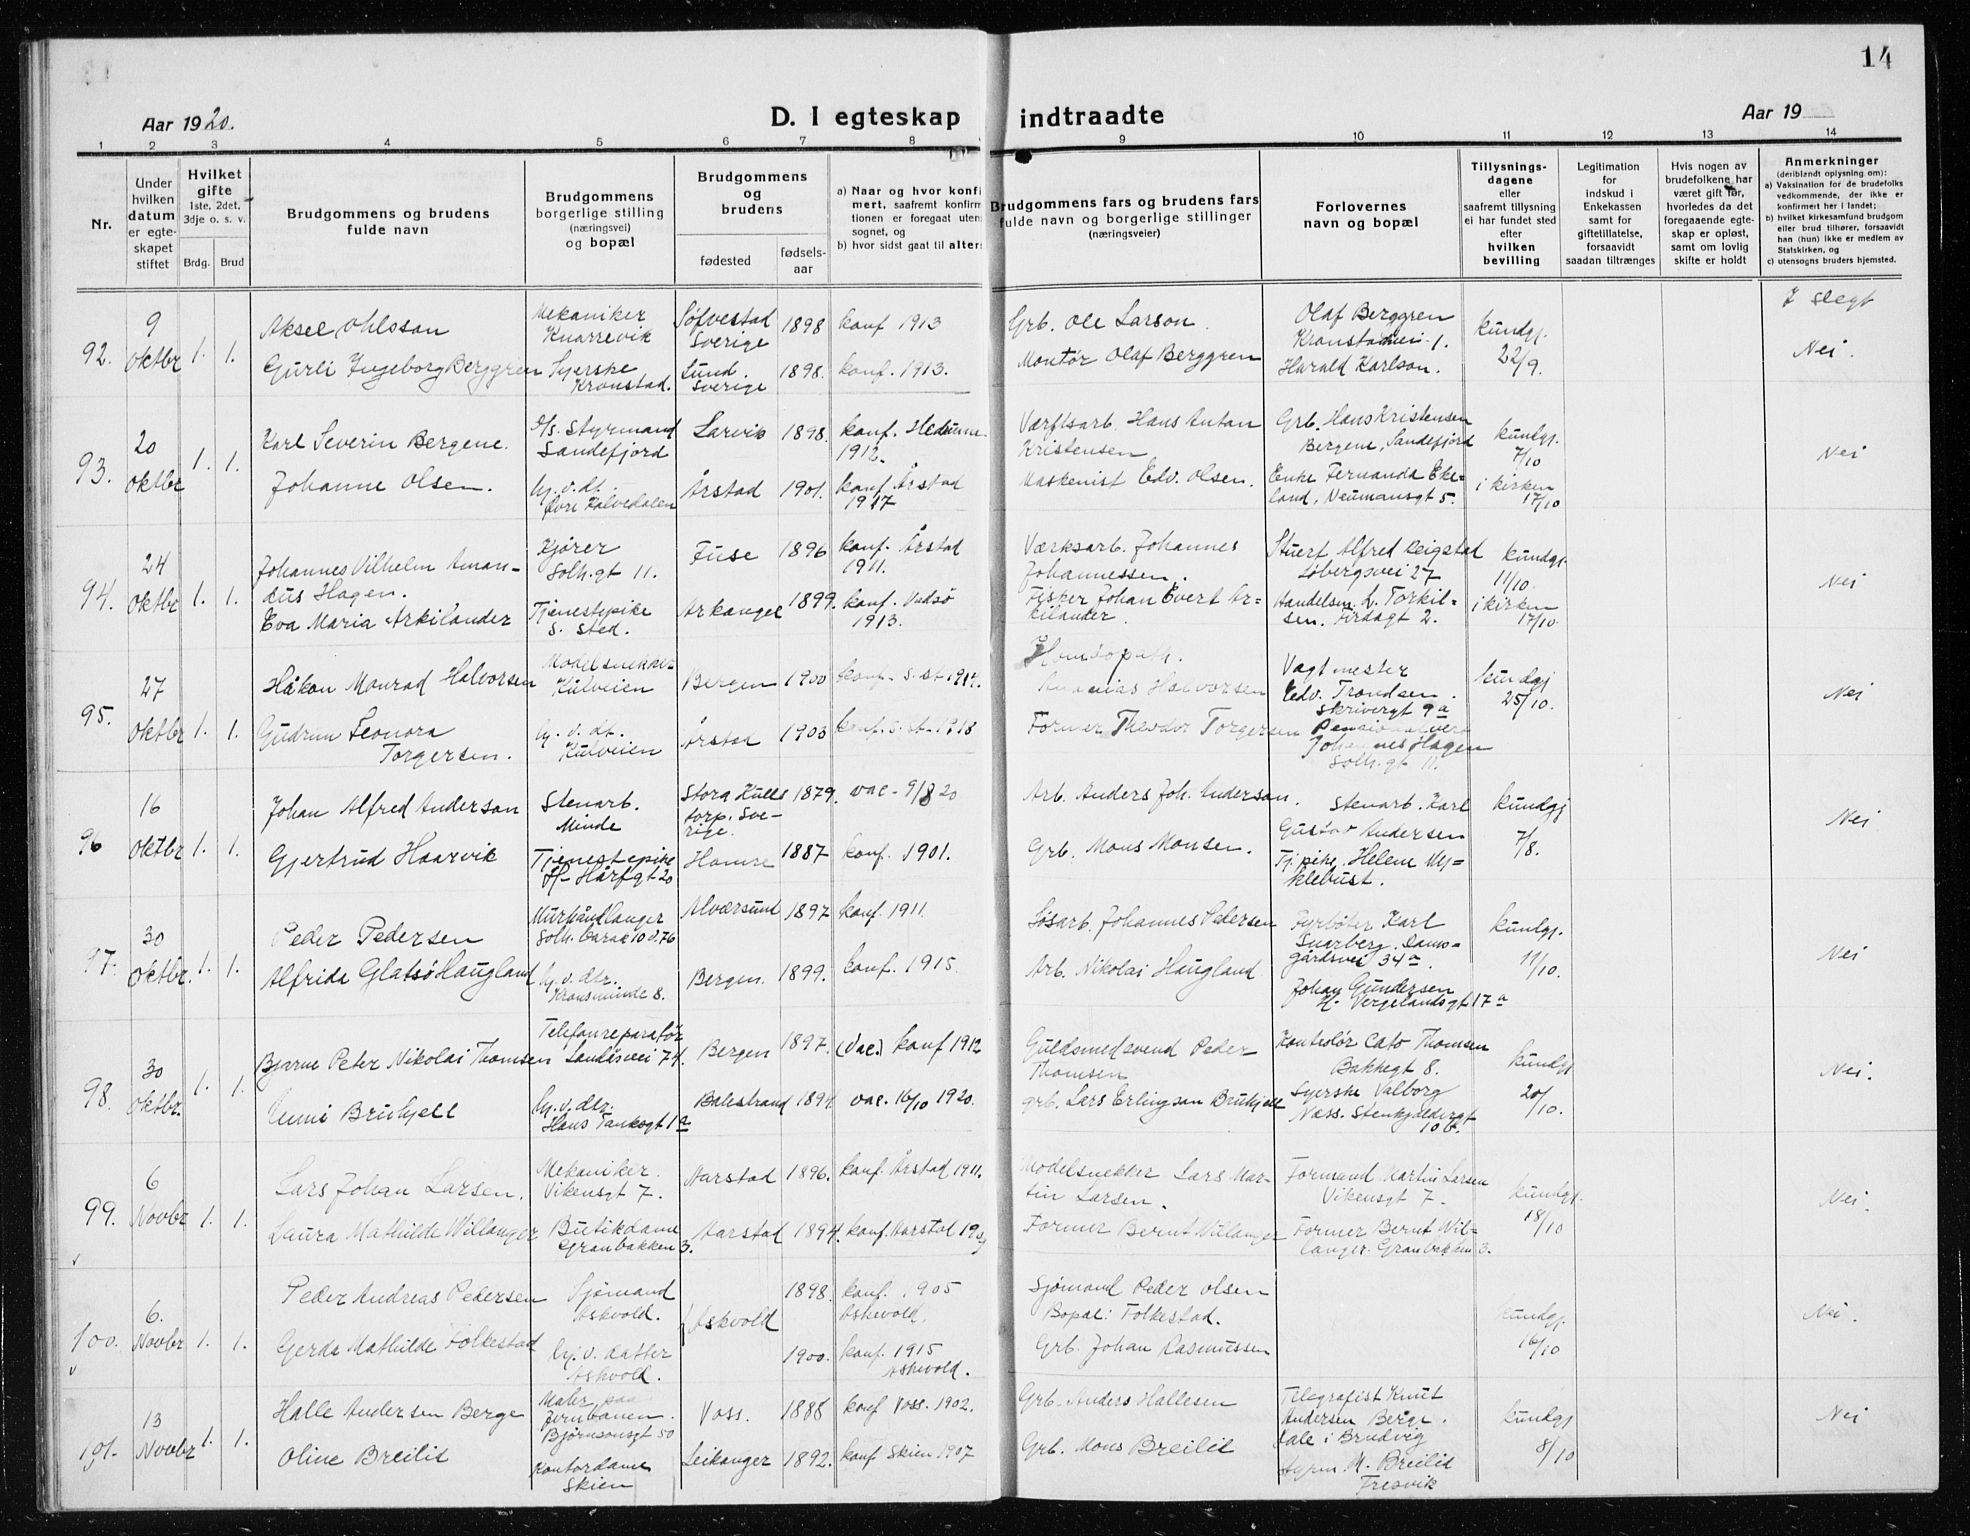 14
Aar 1920.
D. I egteskap indtraadte
Aar 19
1 2 3 4 5 6 7 8 9 10 11 12 13 14
Nr.
Under hvilken datum er egteskapet stiftet
Hvilket gifte
1ste, 2det, 3dje o. s. v.
Brdg. Brud
Brudgommens og brudens
fulde navn
Brudgommens
borgerlige stilling
(næringsvei)
og bopæl
Brudgommens
og
brudens
fødested
fødselsaar
a) Naar og hvor konfirmert, saafremt konfirm
tionen er foregaat uten
sognet, og
b) hvor sidst gaat til alters
Brudgommens fars og brudens fars
fulde navn og borgerlige stillinger
(næringsveier)
Forlovernes
navn og bopæl
Tillysningsdagene
eller
saafremt tillysning
ei har fundet sted
efter
hvilken
bevilling
Legitimation
for
indskud i
Enkekassen
samt for
giftetillatelse,
forsaavidt
saadan tiltrænges
Hvis nogen av
brudefolkene har
været gift før,
hvorledes da det
foregaaende egteskap er opløst,
samt om lovlig
skifte er holdt
Anmerkninger
(deriblandt oplysning om):
a) Vaksination for de brudefolks
vedkommende, der ikke er
konfirmert her i landet;
b) hvilket kirkesamfund brudgom
eller brud tilhører, forsaavidt
han (hun) ikke er medlem av
Statskirken, og
c) utensogns bruders hjemsted.
I slegt
92. 9 Oktbr 1. 1.
Aksel Ohlsson
Mekaniker Knarrevik
Söfvestad Sverige 1898 konf 1913
Grb. Ole Larson.
Olaf Berggren
Kronstadvei 1.
kundgj. 22/9.
Nei.
Gurli Ingeborg Berggren
Syerske Kronstad.
Lund. Sverige 1898. konf. 1913.
Montør Olaf Berggren
Harald Karlson.
93. 20 Oktbr 1. 1.
Karl Severin Bergene.
D/s. Styrmand Sandefjord
Larvik 1898. konf. Hedrum 1912.
Værftsarb. Hans Anton Kristensen
Grb. Hans Kristensen Bergene, Sandefjord
kundgj. 7/10
Nei
Johanne Olsen.
hj. v. dt. Øvre Kalvedalen
Årstad 1901. konf Årstad 1917
Maskenist Edv. Olsen.
Enke Fernanda Ekeland, Neumansgt 5.
i kirken 17/10
94. 24 Oktbr 1. 1.
Johannes Vilhelm Amandus Hagen.
Kjører Solh. gt 11.
Fuse 1896 konf. Årstad 1911.
Værksarb. Johannes Johannessen.
Stuert Alfred Reigstad Løbergsvei 27
kundgj. 11/10.
Nei
Eva Maria Arkilander
Tjenestepike s. sted.
Arkangel 1899. konf. Vadsö 1913.
Fisker Johan Evert Arkilander.
Handelsm. L. Torkilsen. Firdagt 2.
i kirken 17/10.
95. 27 Oktbr 1. 1.
Håkon Monrad Halvorsen
Modelsnekker Kulveien
Bergen 1900 konf. s. st 1914.
Homöopath. Halvorsen
Vagtmester Edv. Trondsen. Skrivergt 9a
kundgj 25/10.
Nei
Gudrun Leonora Torgersen.
hj. v. dt. Kulveien
Årstad 1903 konf. s. st. 1918
Former Theodor Torgersen
Johannes Hagen Solh. gt 11.
96 16 Oktbr 1. 1.
Johan Alfred Anderson
Stenarb. Minde
Stora Kulls torp. Sverige. 1879. vac. 9/8 20
Arb. Anders Joh. Anderson.
Stenarb. Karl Gustav Andersen
kundgj 7/8.
Nei
Gjertrud Haarvik
Tjenestepike H. Hårfgt 20
Hamre 1887 konf. 1901.
Grb. Mons Monsen.
Tj. pike. Helene Myklebust.
97. 30 Oktbr. 1. 1.
Peder Pedersen
Murhåndlanger Solh. barak 10 d. 76
Alværsund 1897 konf. 1911.
Løsarb. Johannes Pedersen
Fyrböter Karl Snarberg. Damsgårdsvei 34a.
kundgj. 11/10.
Nei
Alfrida Glatsö Haugland
hj. v. dtr. Kronsminde 8.
Bergen. 1899. konf. 1915.
Arb. Nikolai Haugland
Johan Gundersen H. Vergelandsgt 17a
98. 30 Oktbr. 1. 1.
Bjarne Peter Nikolai Thomsen
Telefonreparatör Landåsvei 74.
Bergen 1897. (vac.) konf 1912
Guldsmedsvend Peder Thomsen
Kontorlør Cato Thomsen Bakkegt 8.
kundgj 20/10.
Nei.
Unni Bruhjell
hj. v. dtr. Hans Tanksgt 1a
Balestrand 1897. vac. 16/10 1920.
grb. Lars Erlingson Bruhjell
Syerske Valborg Næss. Stenkjeldergt 10b.
99. 6 Novbr 1. 1.
Lars Johan Larsen.
Mekaniker. Vikensgt 7.
Aarstad 1896. konf. Årstad 1911.
Modelsnekker Lars Martin Larsen.
Formand Martin Larsen Vikensgt 7.
kundgj. 18/10
Nei.
Laura Mathilde Willanger
Butikdame Granbakken 3.
Aarstad 1894. konf. Aarstad 1909
Former Bernt Willanger
Former Bernt Willanger. Granbakken 3.
100. 6. Novbr 1. 1.
Peder Andreas Pedersen
Sjømand Askvold.
Askvold 1898. konf. 1905 Askevold.
Sjømand Peder Olsen Bopæl: Folkestad.
kundgj. 16/10
Nei.
Gerda Mathilde Folkestad
hj. v. datter Askvold.
1900. konf. 1915 Askevold.
Grb. Johan Rasmussen
101. 13 Novbr 1. 1.
Halle Andersen Berge
Maler paa Jernbanen. Bjørnsonsgt 50
Voss. 1888 konf Voss. 1902.
Grb. Anders Hallesen
Telegrafist Knut Andersen Berge. Dale i Bruvig
kundgj 8/10
Nei
Oline Breilid
Kontordame Skien
Leikanger 1892. konf Skien 1907
Grb. Mons Breilid
M. Breilid Fresvik